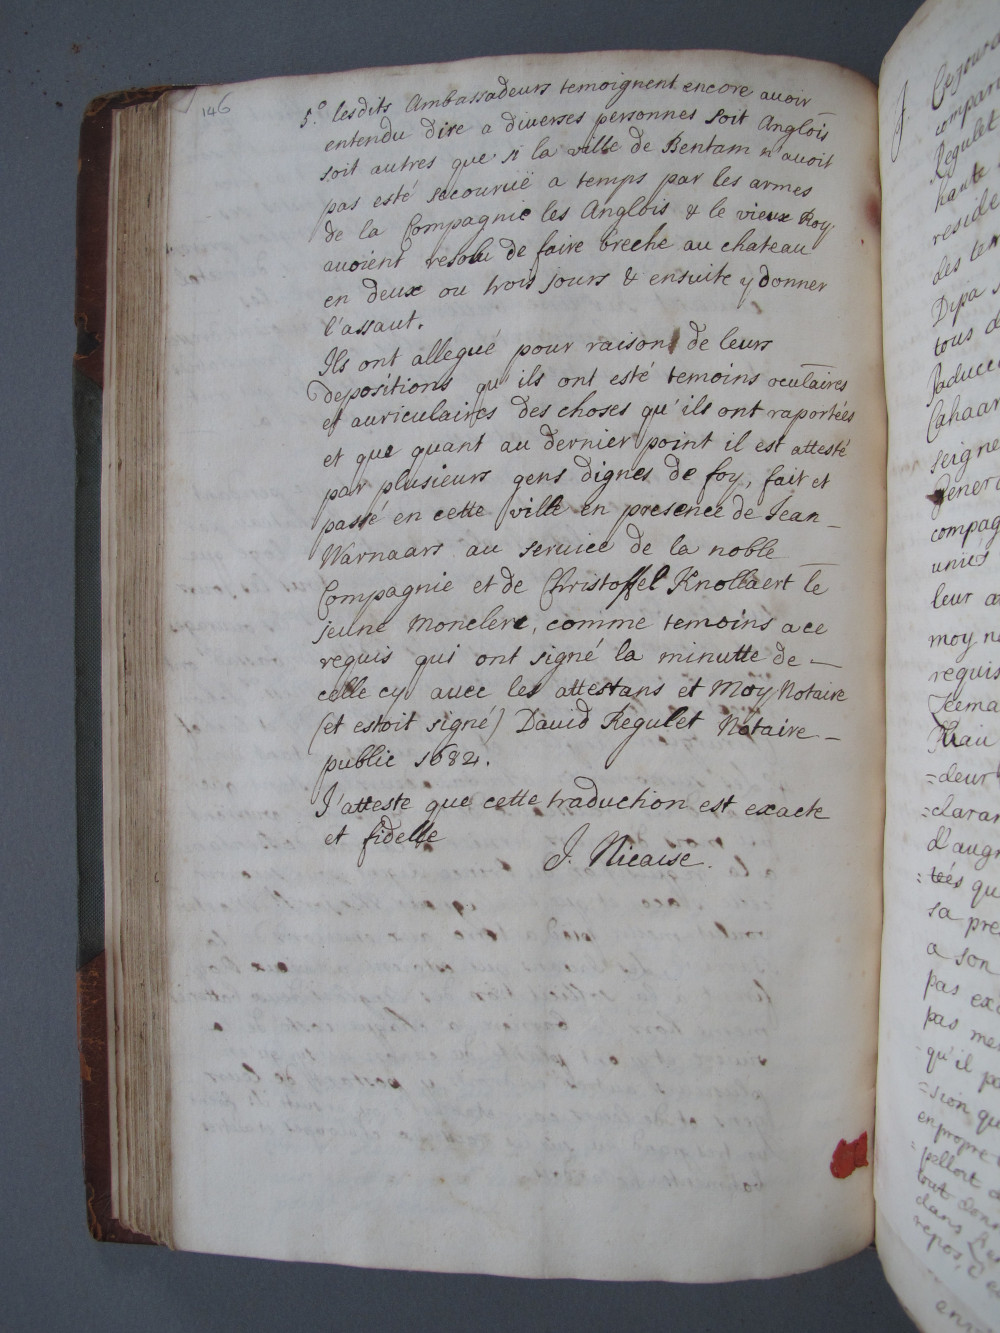 146
5.° lesdits Ambassadeurs temoignent encore avoir
entendu dire a diverses personnes soit Anglois
soit autres que si la ville de Bentam n'avoit
pas esté secouruë a temps par les armes
de la Compagnie les Anglois & le vieux Roy
avoient resolu de faire breche au chateau
en deux ou trois jours & ensuite y donner
l'assaut.
Ils ont allegué pour raison de leurs
depositions qu'ils ont esté temoins oculaires
et auriculaires des choses qu'ils ont raportées
et que quant au dernier point il est attesté
par plusieurs gens dignes de foy, fait et
passé en cette ville en presence de Jean
Warnaars au service de la noble
Compagnie et de Christoffel Knollaert le
jeune Monclerc, comme temoins a ce
requis qui ont signé la minutte de —
celle cy avec les attestans et Moy Notaire
(et estoit signé) David Regulet Notaire —
public 1682.
J'atteste que cette traduction est exacte
et fidelle
J. Nicaise.
J.
compar
Regulet
haute
reside
des ter
Dipa
tous d
Cahaar
seigne
compag
unies
leur a
moy n
requis
Keema
=deur
=clarar
d'augr
:tés qu
sa pre
a son
pas exc
pas me
qu'il pa
=sion que
en propre
tout
dans
repos,